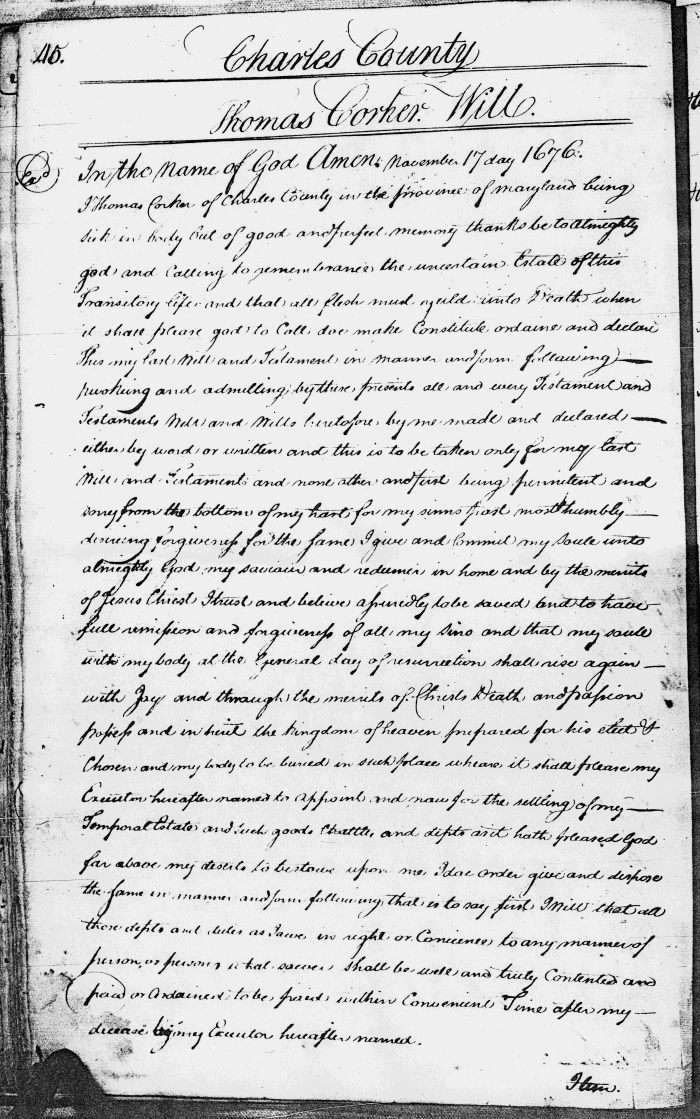 40.
Charles County
Thomas Corker. Will.
Exd
In the Name of God Amen: November 17 day 1676.
I Thomas Corker of Charles County in the province of maryland being
Sick in body but of good and perfect memory thanks be to Almighty
god and Calling to remembrance the uncertain Estate of this
Transitory life and that all flesh must yeild unto Death when
it shall please god to Call doe make Constitute ordaine and declare
This my last Will and Testament in manner and form following
revoking and admilling by these presents all and every Testament and
Testaments Will and Wills heretofore by me made and declared
either by word or written and this is to be taken only for my last
Will and Testament and none other and first being penitent and
sory from the bottom of my hart for my sinns past most humbly
desireing forgiveness for the same I give and Commit my soule unto
almighty God my saviour and redeemer in home and by the merits
of Jesus Christ I trust and believe assuredly to be saved and to have
full remission and forgiveness of all my Sins and that my soule
with my body at the General day of resurrection shall rise again
with Joy and through the merits of Christs Death and passion
posess and inherit the kingdom of heaven prepared for his elect &
Chosen and my body to be buried in such place wheare it shall please my
Executor hereafter named to appoint and now for the settling of my
Temporal Estate and such goods Chattles and depts as it hath pleased God
far above my deserts to bestowe upon me I doe order give and dispose
the same in manner and form following that is to say first I Will that all
those depts and dutes as I owe in right or Conscience to any manner of
person or persons what soever shall be well and truly Contented and
paid or Ordained to be paid within Convenient Time after my
decease by my Executor hereafter named.
Item.